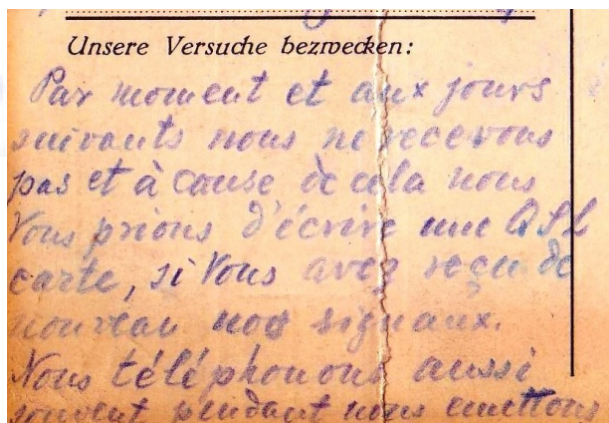 Unsere Versuche bezwecken:
Par moment et aux jours
suivants nous ne recevons
pas et à cause de cela nous
Vous prions d'écrire une QSL
carte, si Vous avez reçu de
nouveau nos signaux.
Nous téléphonons aussi
souvent pendant nous emettons